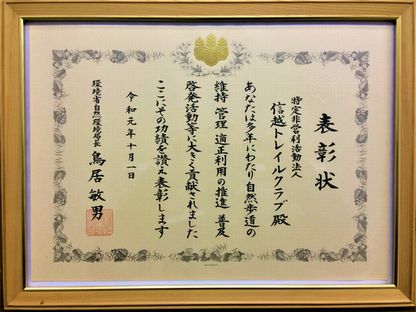 表彰状
特定非営利活動法人
信越トレイルクラブ殿
あなたは多年にわたり自然歩道の
維持 管理 適正利用の推進 普及
啓発活動等に大きく貢献されました
ここにその功績を讃え表彰します
令和元年十月一日
環境省自然環境局長 鳥居敏男